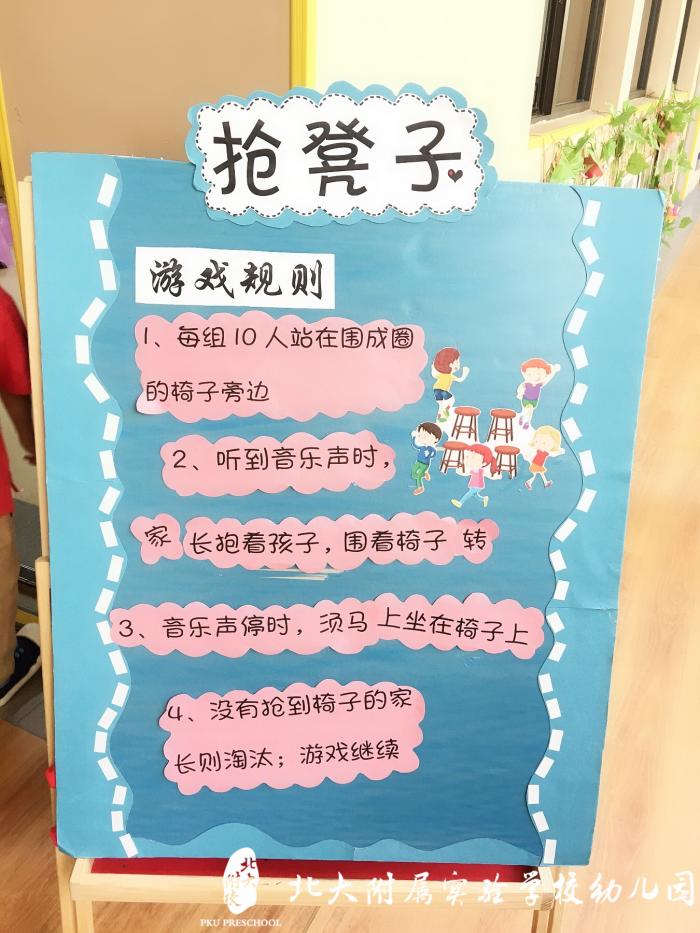 抢凳子
游戏规则
1、每组10人站在围成圈
的椅子旁边
2、听到音乐声时，
家长抱着孩子，围着椅子 转
3、音乐声停时，须马上坐在椅子上
4、没有抢到椅子的家
长则淘汰；游戏继续
北大附属实验学校幼儿园
PKU PRESCHOOL